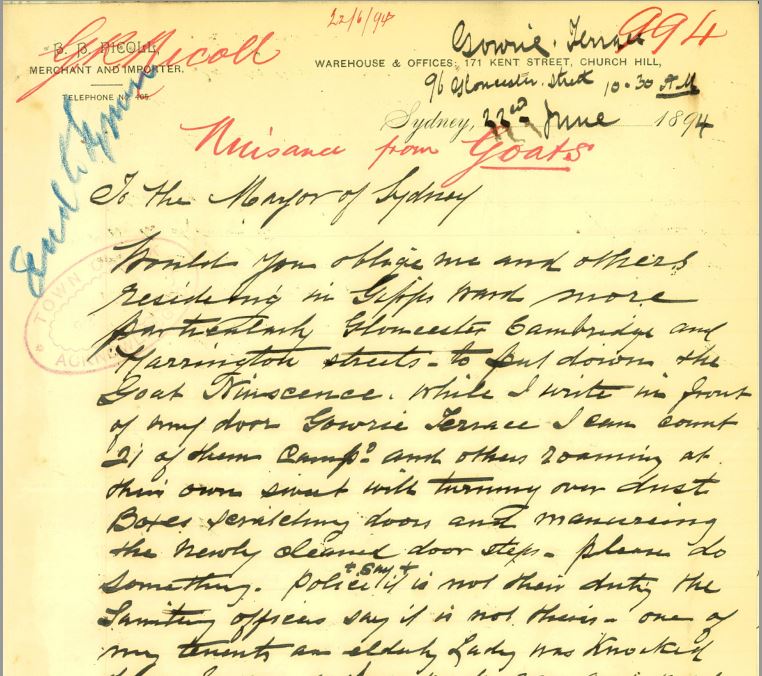 22/6/94
994
G. R. Nicoll
B. B. NICOLL,
MERCHANT AND IMPORTER.
TELEPHONE No 405.
Gowrie Terrace
WAREHOUSE & OFFICES: 171 KENT STREET, CHURCH HILL,
96 Gloucester street 10.30 AM
Sydney, 22nd June 1894
Nuisance from Goats
To the Mayor of Sydney
TOWN
Would you oblige me and others
residing in Gipps ward more
particularly Gloucester Cambridge and
Harrington streets - to put down the
Goat Nuscence. While I write in front
of my door Gowrie Terrace I can count
21 of them Campd and others roaming at
their own sweet will turning over dust
Boxes scratching doors and manureing
the newly cleaned door steps - please do
something. Police + say + it is not their duty the
Sanitary officers say it is not theirs - one of
my tenents an elderly Lady was Knocked